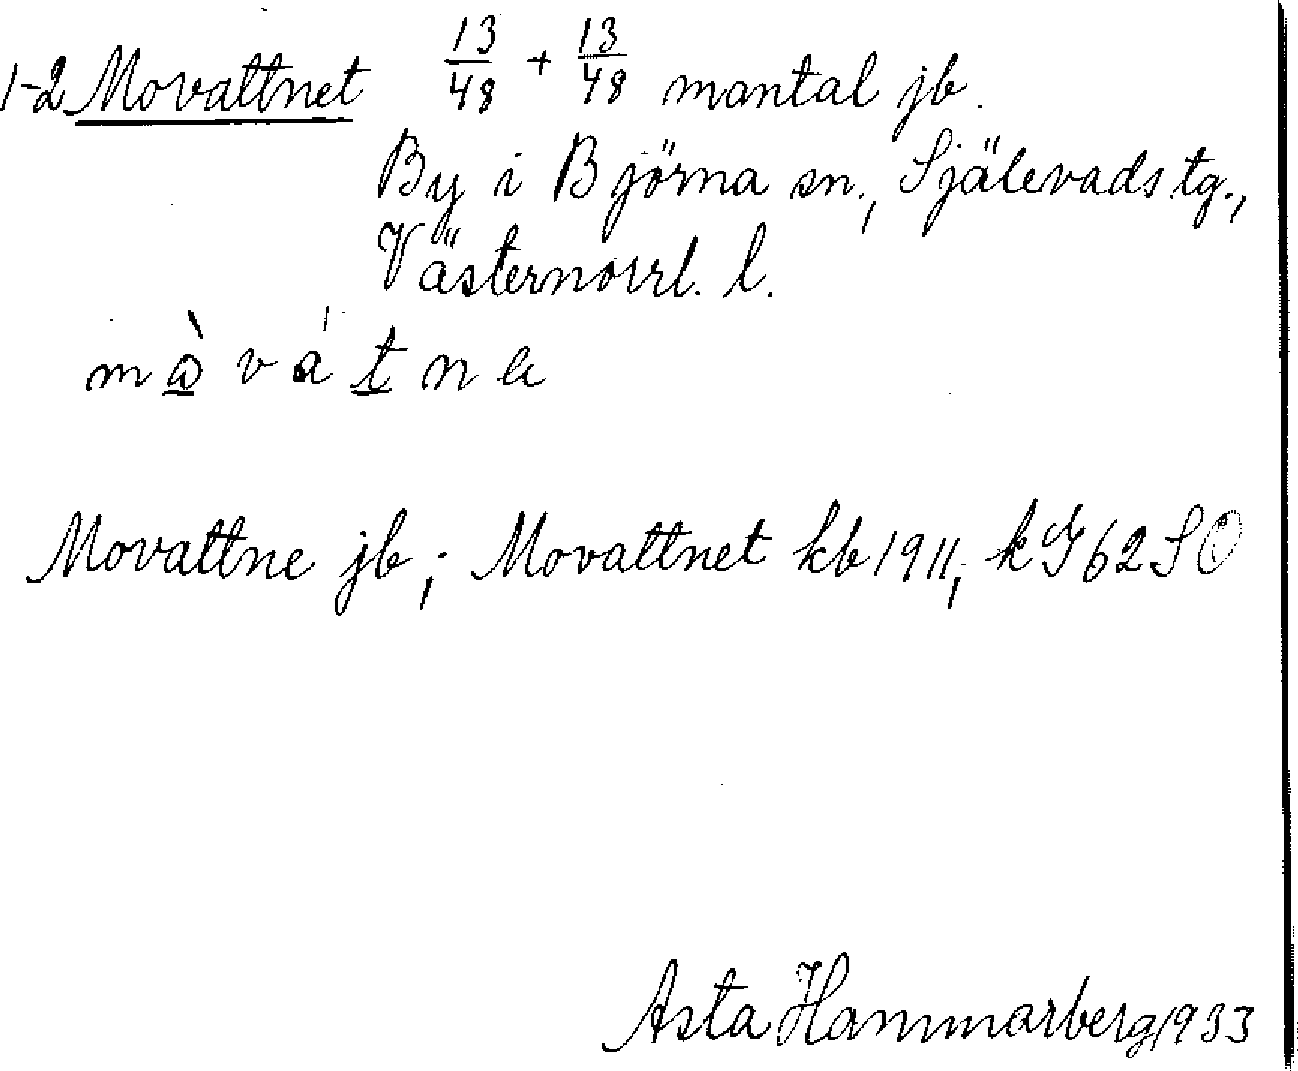 1-2 Movattnet 13/48 + 13/48 mantal jb.
By i Björna sn., Själevads tg.,
Västernorrl. l.
Movattne jb; Movattnet kb 1911, kG 62 SO
Asta Hammarberg 1933